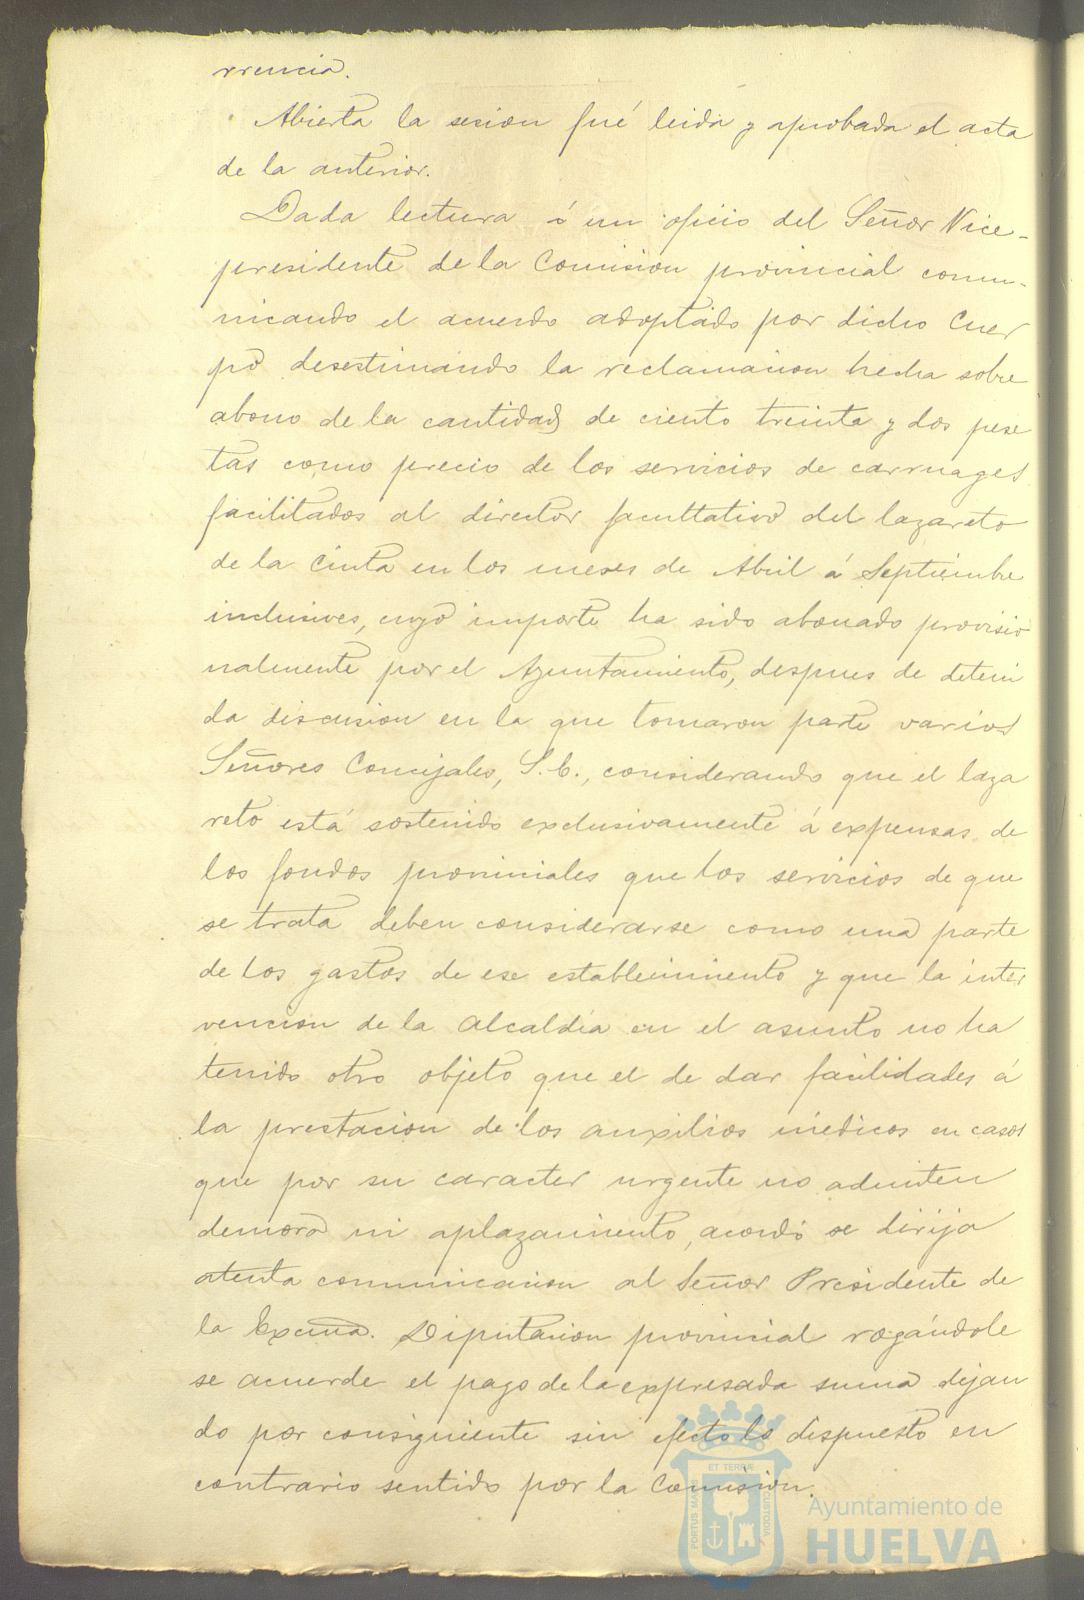 rrencia.
Abierta la sesion fué leida y aprobada el acta
de la anterior.
Dada lectura á un oficio del Señor Vice-
presidente de la Comision provincial comu-
nicando el acuerdo adoptado por dicho Cuer
po desestimando la reclamacion hecha sobre
abono de la cantidad de ciento treinta y dos pese
tas como precio de los servicios de carruages
facilitados al director facultativo del lazareto
de la Cinta en los meses de Abril á Septiembre
inclusives, cuyo importe ha sido abonado provisio
nalmente por el Ayuntamiento, despues de deteni
da discusion en la que tomaron parte varios
Señores Concejales, S.E., considerando que el laza
reto está sostenido exclusivamente á expensas de
los fondos provinciales que los servicios de que
se trata deben considerarse como una parte
de los gastos de ese establecimiento y que la inter
vencion de la Alcaldia en el asunto no ha
tenido otro objeto que el de dar facilidades á
la prestacion de los auxilios médicos en casos
que por su caracter urgente no admiten
demora ni aplazamiento, acordó se dirija
atenta comunicacion al Señor Presidente de
la Excma. Diputacion provincial rogándole
se acuerde el pago de la expresada suma dejan
do por consiguiente sin efecto lo dispuesto en
contrario sentido por la Comision.
ET TERRÆ
PORTUS MARIS
CUSTODIA
Ayuntamiento de
HUELVA